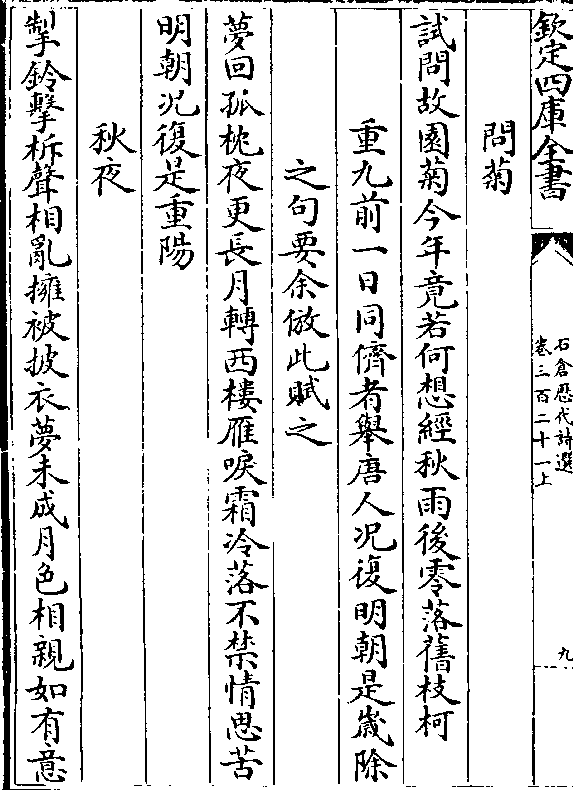 欽定四庫全書
石倉歴代詩選
卷三百二十一上
九
問菊
試問故園菊今年竟若何想經秋雨後零落舊枝柯
重九前一日同儕者舉唐人况復明朝是歲除
之句要余倣此賦之
夢回孤枕夜更長月轉西樓雁唳霜冷落不禁情思苦
明朝况復是重陽
秋夜
掣鈴擊柝聲相亂擁被披衣夢未成月色相親如有意